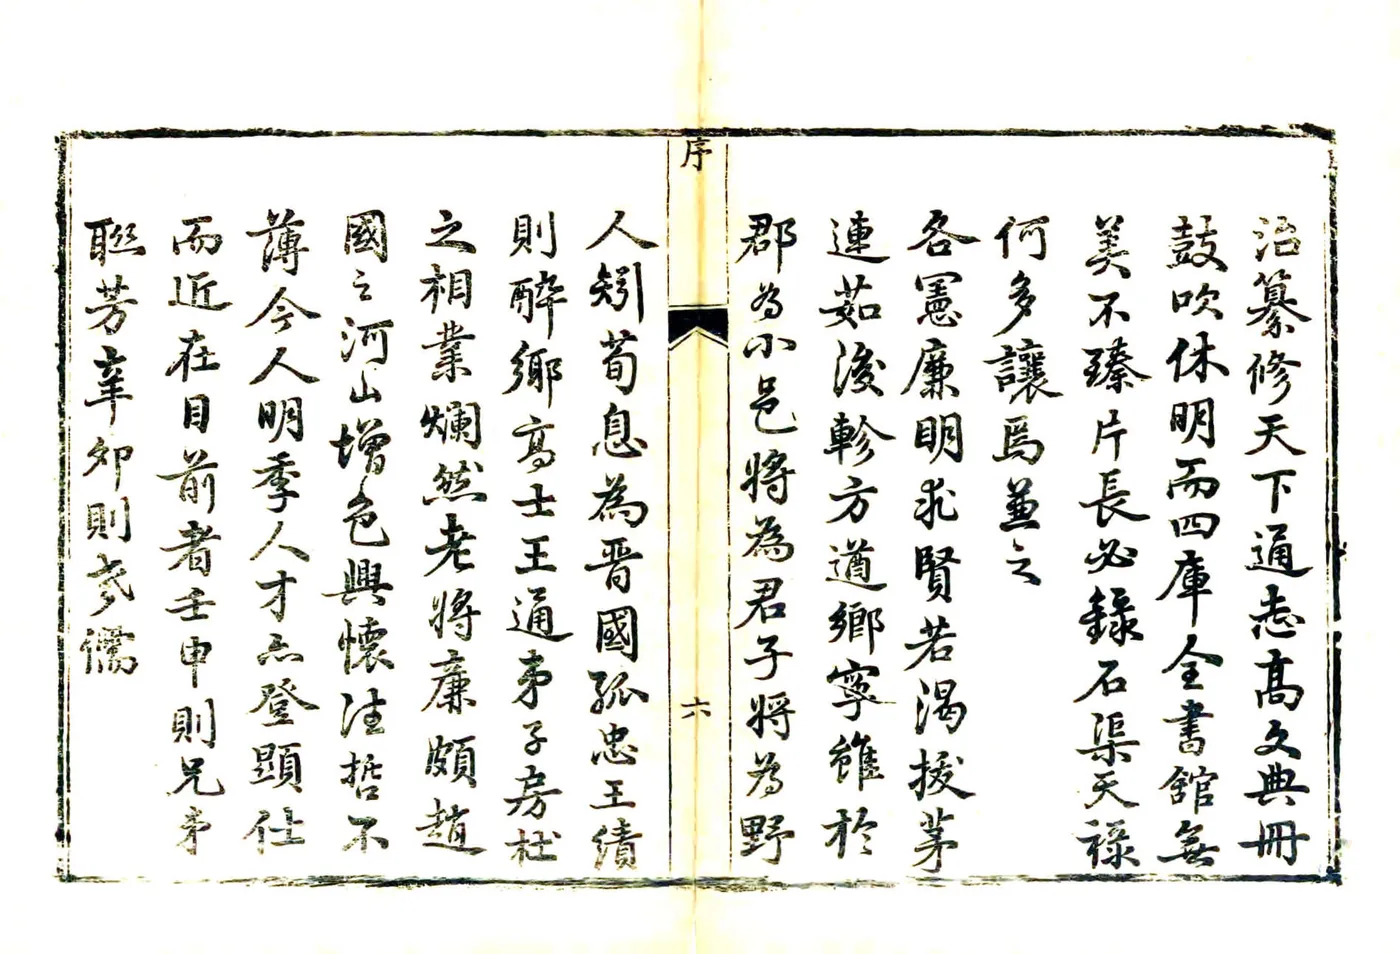 治纂修天下通志高文典冊
鼓吹休明而四庫全書館無
美不臻片長必錄石渠天祿
何多讓焉兼之
各憲廉明求賢若渴拔茅
連茹後軫方遒鄉寧雖於
郡為小邑將為君子將為野
序
六
人矧荀息為晋國孤忠王績
則醉鄉高士王通弟子房杜
之相業爛然老將廉頗趙
國之河山增色興懷往哲不
薄今人明季人才亦登顯仕
而近在目前者壬申則兄弟
聯芳辛卯則喬儒